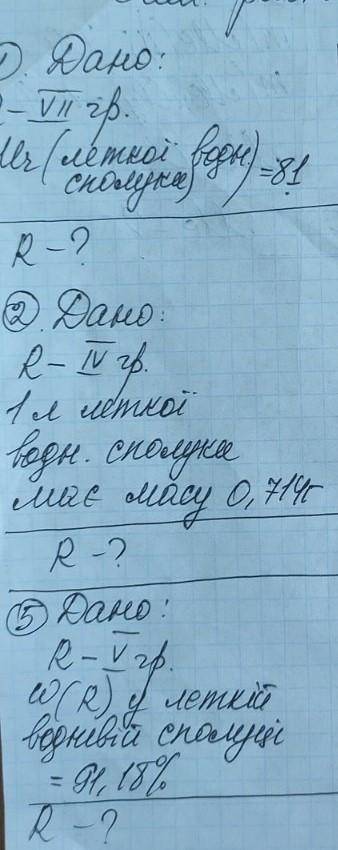 Сам. роб.
1). Дано:
R – VII гр.
Mr (леткої водн.
сполуки) = 81
R – ?
2. Дано:
R – IV гр.
1 л леткої
водн. сполуки
має масу 0,714г
R – ?
5 Дано:
R – V гр.
W(R) у леткій
водневій сполуці
= 91,18%
R – ?